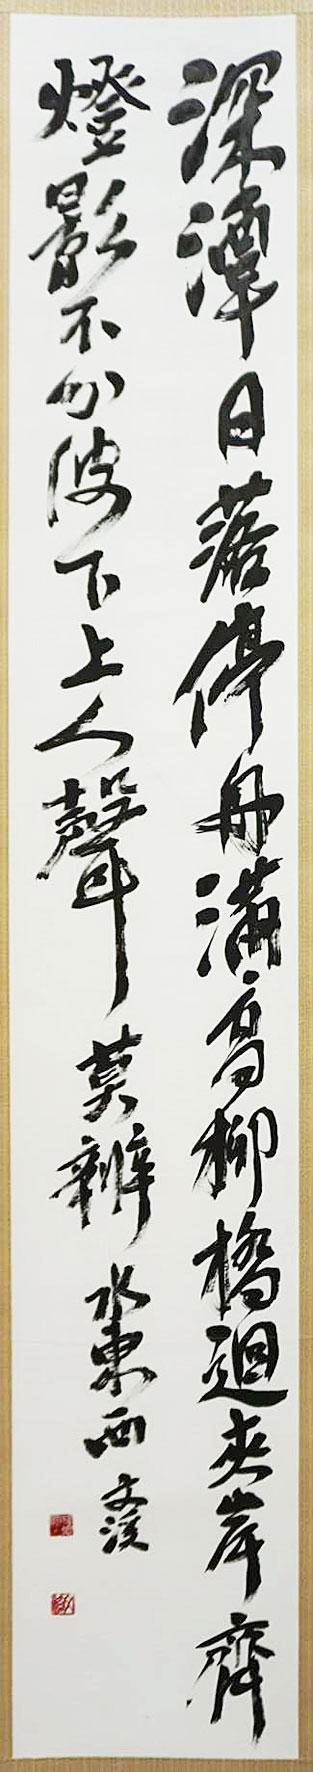 深潭日落停舟満高柳橋迴夾岸齊
燈影不分波下上人聲莫辨水東西 文渓